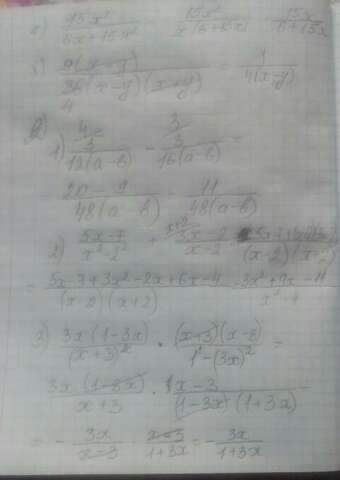 а) 15x² / 6x+15x² 15x² / x(6+15x) 15x / 6+15x
б) 9(x-y) / 36(x-y)(x+y) = 1 / 4(x-y)
4
2)
1) 12(a-b) - 16(a-b) =
20-9 / 48(a-b) = 11 / 48(a-b)
2) 5x-7 / x²-2² + 3x-2 / x-2
= 5x-7+3x²-2x+6x-4 / (x-2)(x+2) = 3x²+9x-11 / x²-4
3) 3x(1-3x) / (x+3)² · (x+3)(x-3) / 1²-(3x)² =
3x(1-3x) / x+3 · x-3 / (1-3x)(1+3x)
= - 3x / x-3 · x-3 / 1+3x = - 3x / 1+3x